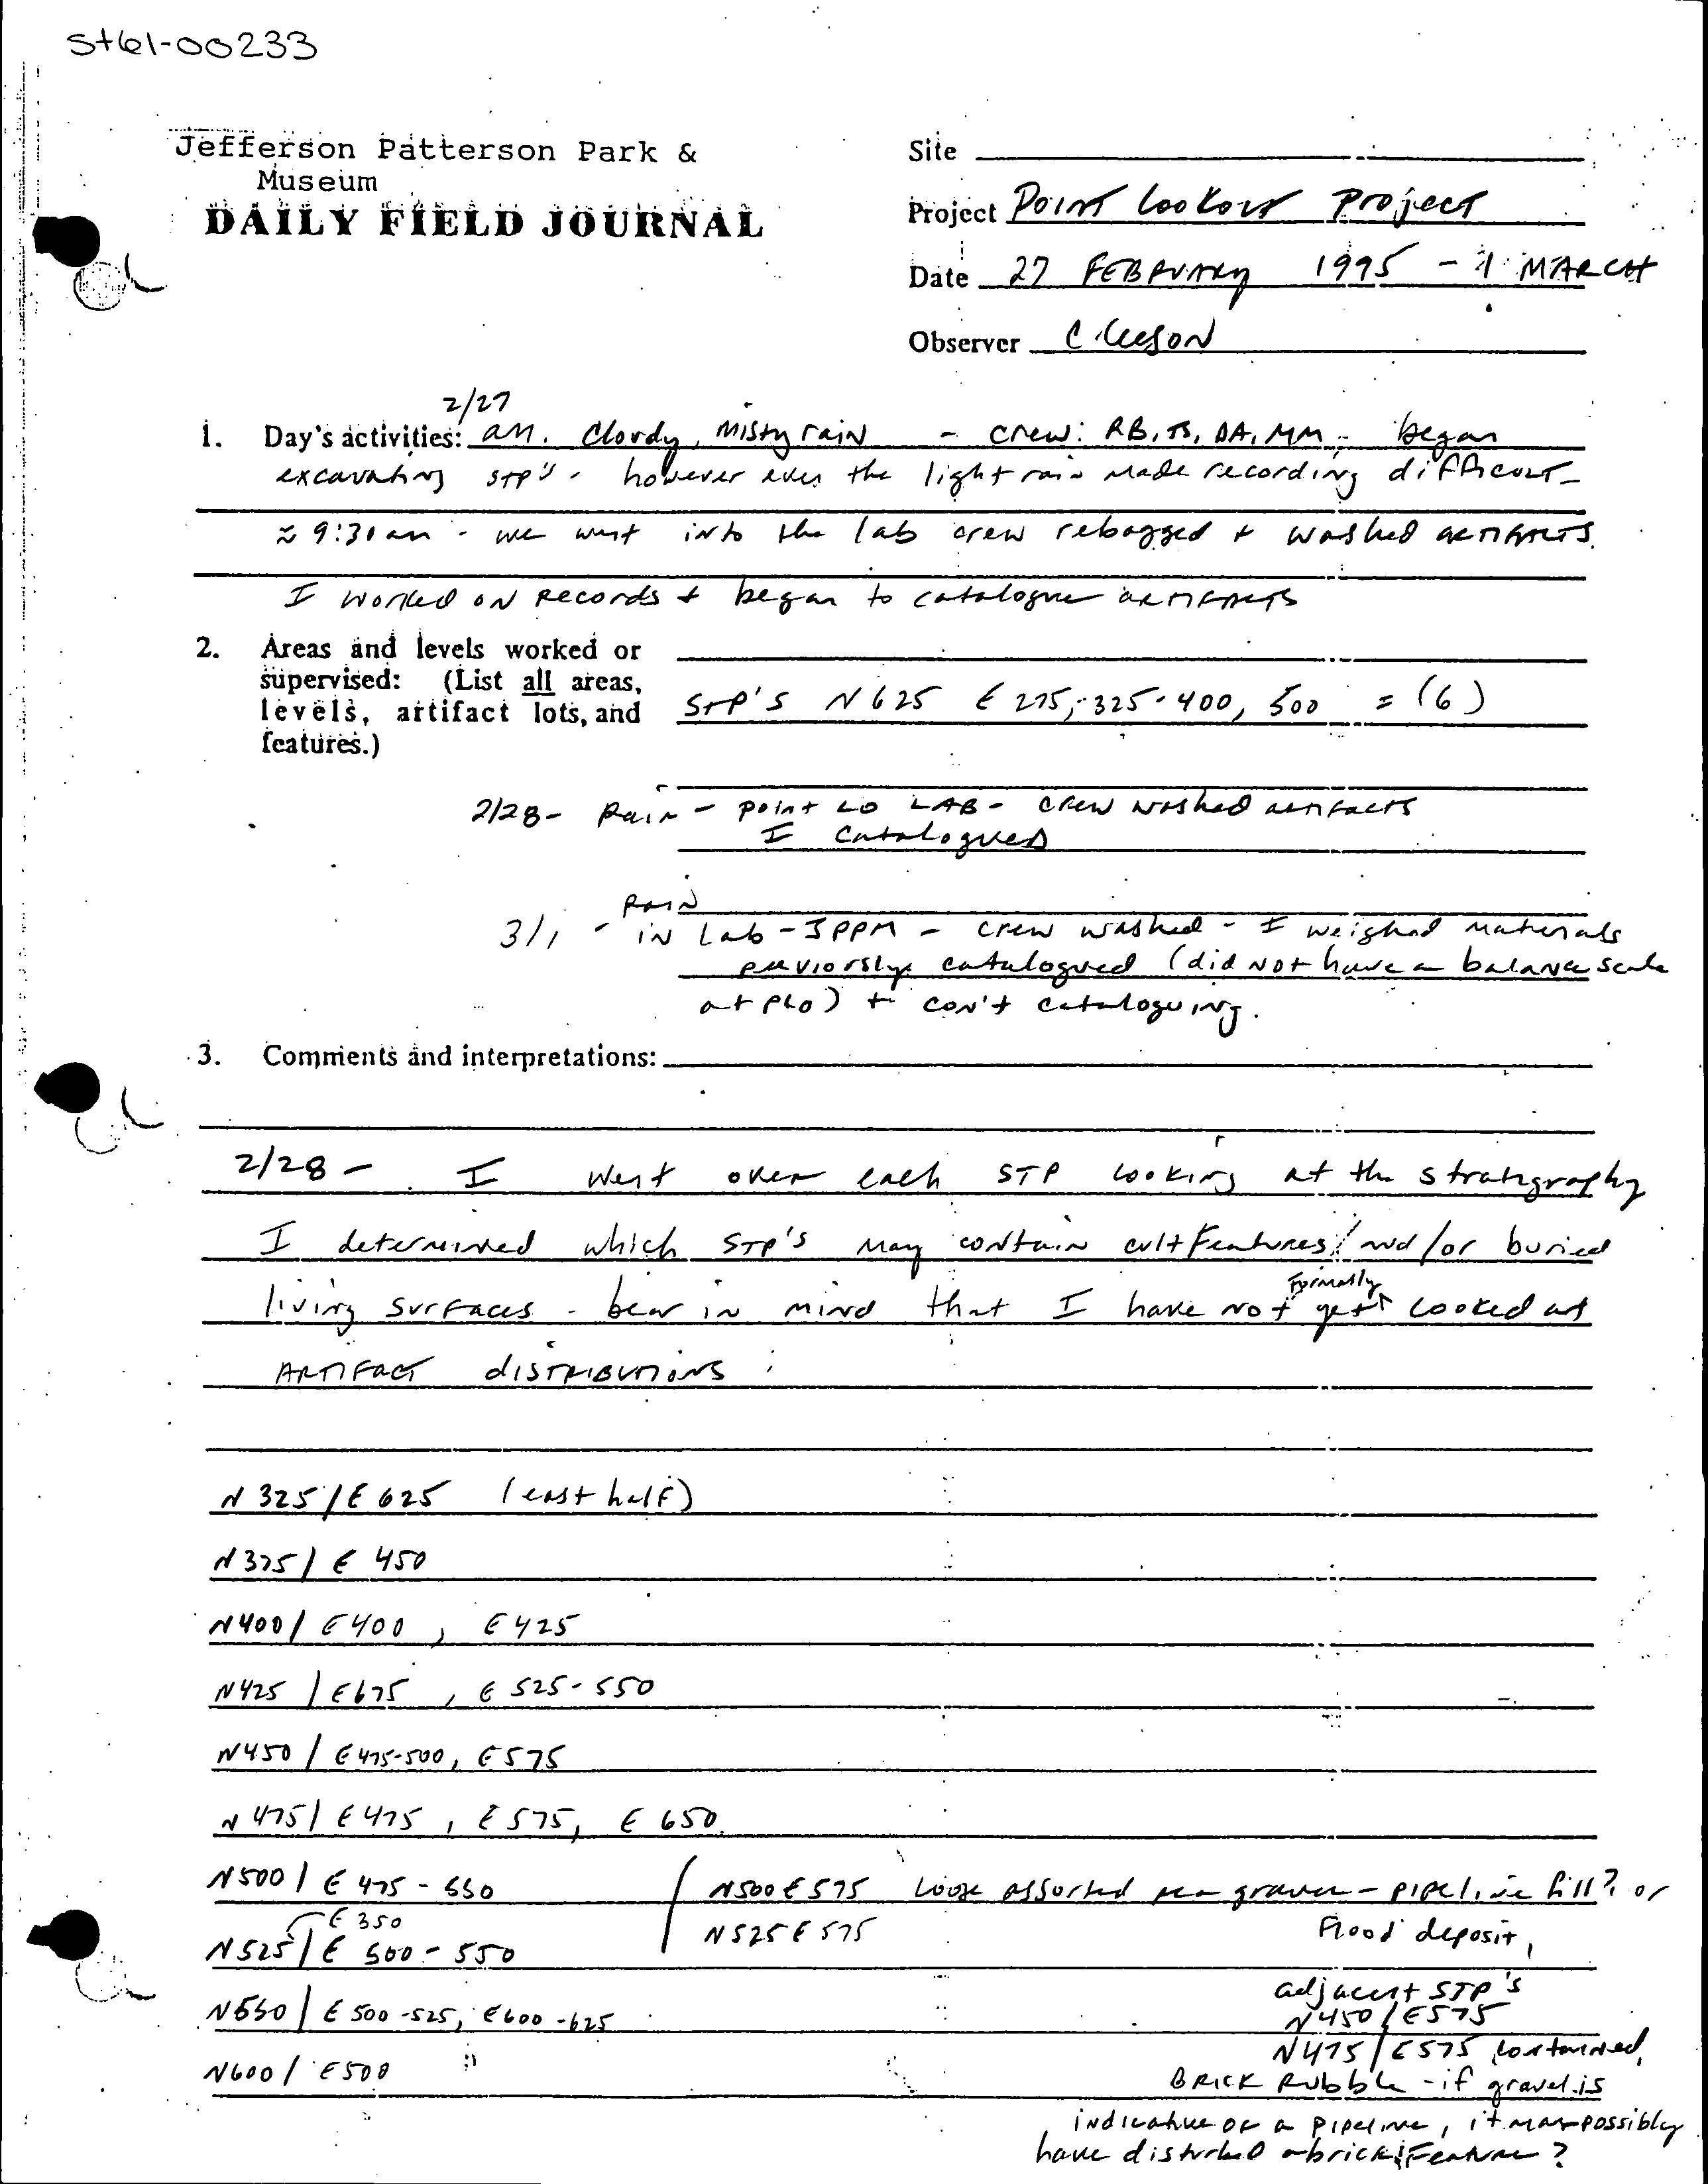 St61-00233
Jefferson Patterson Park &
Museum
DAILY FIELD JOURNAL
Site
Project Point Lookout Project
Date 27 FEBRUARY 1995 - 1 MARCH
Observer C. Leeson
2/27
1. Day's activities: am. Cloudy, misty rain - crew: RB, TS, DA, MM - began
excavating STP's - however even the light rain made recording difficult -
≈ 9:30 am - we went into the lab crew rebagged + washed artifacts.
I worked on records + began to catalogue artifacts
2. Areas and levels worked or
supervised: (List all areas,
levels, artifact lots, and
features.)
STP's N625 E 275, -325-400, 500 = (6)
2/28- Rain - Point LO LAB - crew washed artifacts
I catalogued
Rain
3/1 - in Lab - JPPM - crew washed - I weighed materials
previously catalogued (did not have a balance scale
at PLO) + con't cataloguing.
3. Comments and interpretations:
2/28 - I went over each STP looking at the stratigraphy
I determined which STP's may contain cult features/ and/or buried
living surfaces - bear in mind that I have not yet formally looked at
Artifact distributions
N 325/E 625 (east half)
N375/ E 450
N400/ E400, E425
N425 / E675, E 525-550
N450 / E475-500, E575
N475/ E475, E575, E 650
N500 / E 475 - 550 / N500E575 Loose assorted pea gravel - pipeline fill? or
E 350
N525/E 500 - 550 N525E575 Flood deposit,
adjacent STP's
N550/ E 500-525, E600-625 N450/E575
N475/E575 contained,
N600/ E500 BRICK Rubble - if gravel is
indicative of a pipeline, it may possibly
have disturbed a brick feature?